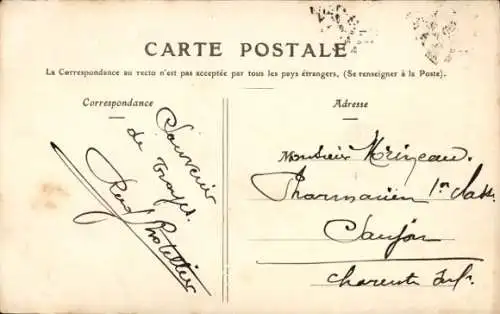 CARTE POSTALE
La Correspondance au recto n'est pas acceptée par tous les pays étrangers. (Se renseigner à la Poste).
Correspondance
Souvenir
de Troyes.
René
Adresse
Monsieur Mérizeau.
Pharmacien 1re Classe
Saujon
Charente Infre